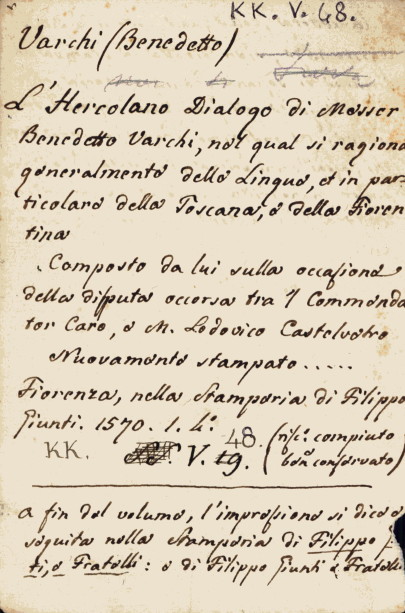 KK. V. 48.
Varchi (Benedetto)
L'Hercolano Dialogo di Messer
Benedetto Varchi, nel qual si ragiona
generalmente delle Lingue, et in par-
ticolare della Toscana, e della Fioren
tina
Composto da lui sulla occasione
della disputa occorsa tra 'l Commenda
tor Caro, e M. Lodovico Castelvetro
Nuovamente stampato .....
Fiorenza, nella Stamperia di Filippo
Giunti. 1570. 1. 4°.
KK. V. 19. 48. (compiuto
conservato)
a fin del volume, l'impressione si dice e
seguita nella Stamperia di Filippo
ti, e Fratelli: e di Filippo Giunti e Fratelli